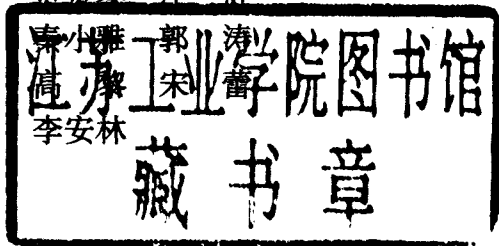 秦小雅 郭 涛
高 黎 宋 蕾
李安林
江苏工业学院图书馆
藏书章